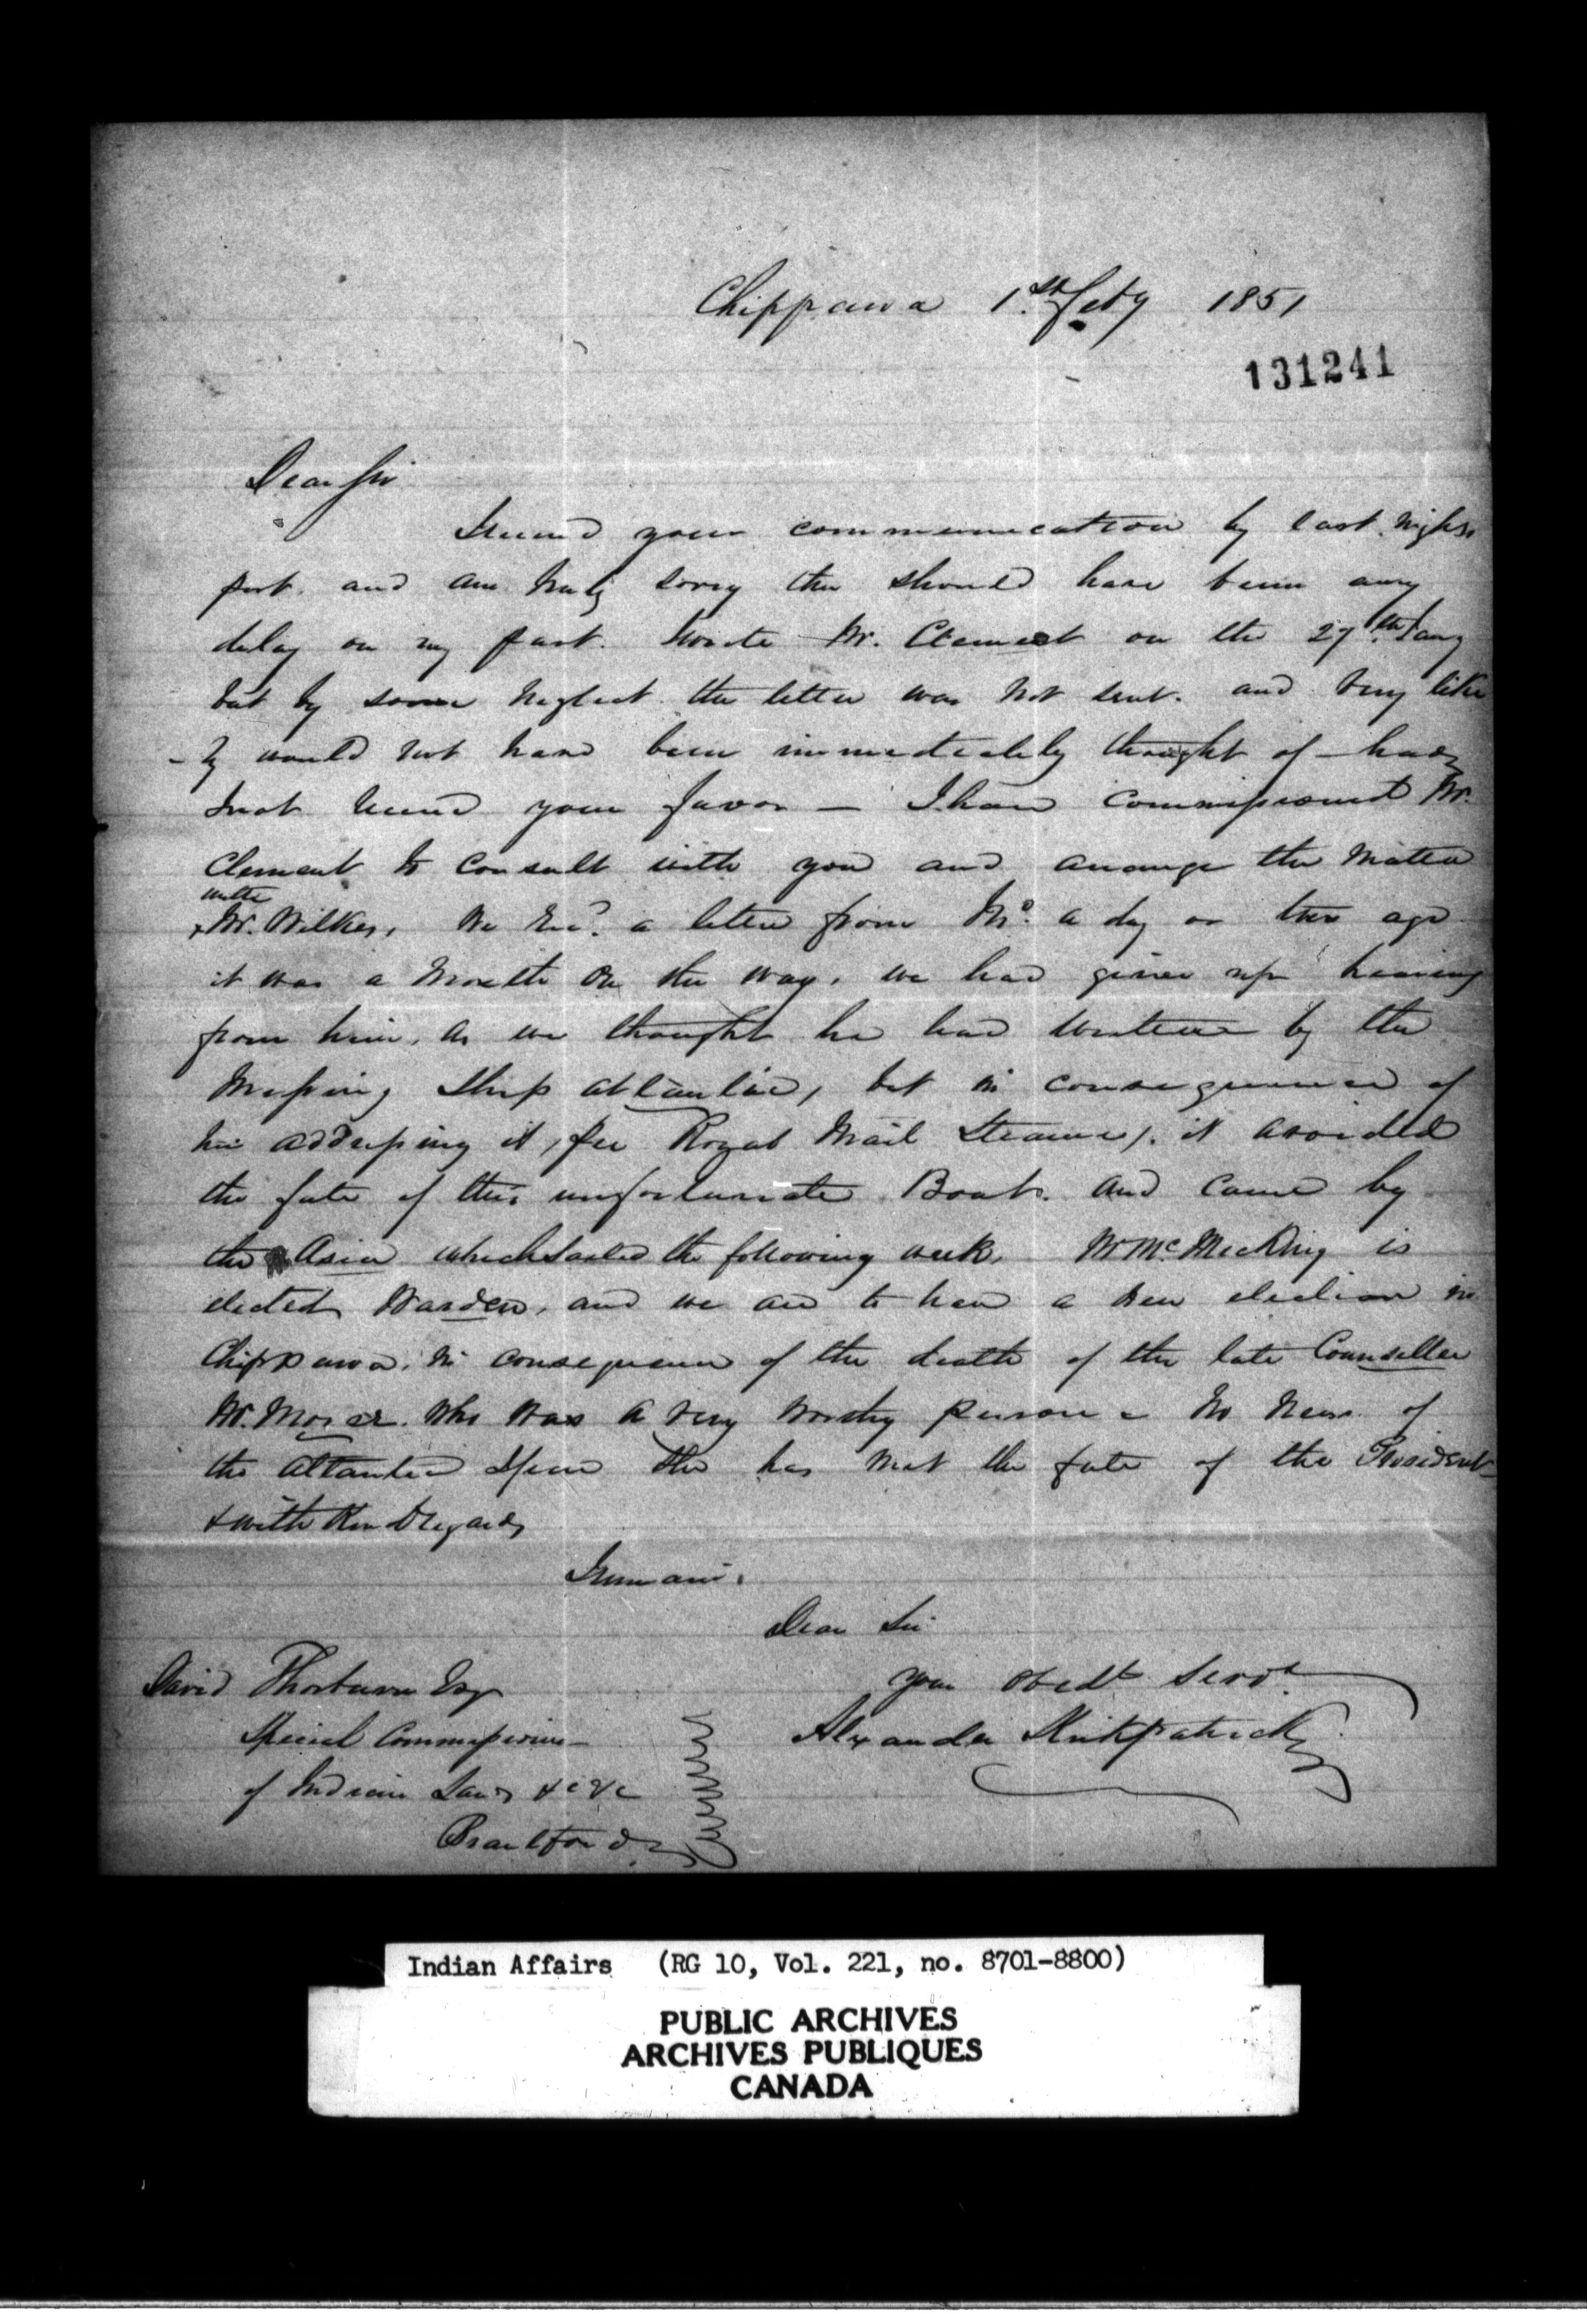 Chippawa 1.st Feby 1851
131241
Dear Sir
I recived your communication by last nights
post and am truly sorry there should have been any
delay on my part. I wrote Mr. Clement on the 27.th Jany
but by some neglect the letter was not sent. and very like
-ly would not have been immediately thought of – had
I not received your favor — I have commissioned Mr.
Clement to consult with you and arrange the matter
with
Mr. Wilkes, We recd. a letter from a day or two ago
it was a month on the way, we had given up hearing
from him, as we thought he had written by the
Missing Ship Atlantic, but in consequence of
his addressing it, per Royal Mail Steamer, it avoided
the fate of this unfortunate Boat. and came by
the Asia which sailed the following week, Mr Mc.Micking is
elected Warden, and we are to have a new election in
Chippawa, in consequence of the death of the late Counsellor
Mr. who was a very worthy person – No news of
the Atlantic I fear she has met the fate of the President
& with Kind Regards
I remain,
Dear Sir
your obedt servt
Alexander Kirkpatrick
David Thorburn Esqr
Special Commissioner
of Indian Lands &c &c
Brantford
Indian Affairs (RG 10, Vol. 221, no. 8701-8800)
PUBLIC ARCHIVES
ARCHIVES PUBLIQUES
CANADA